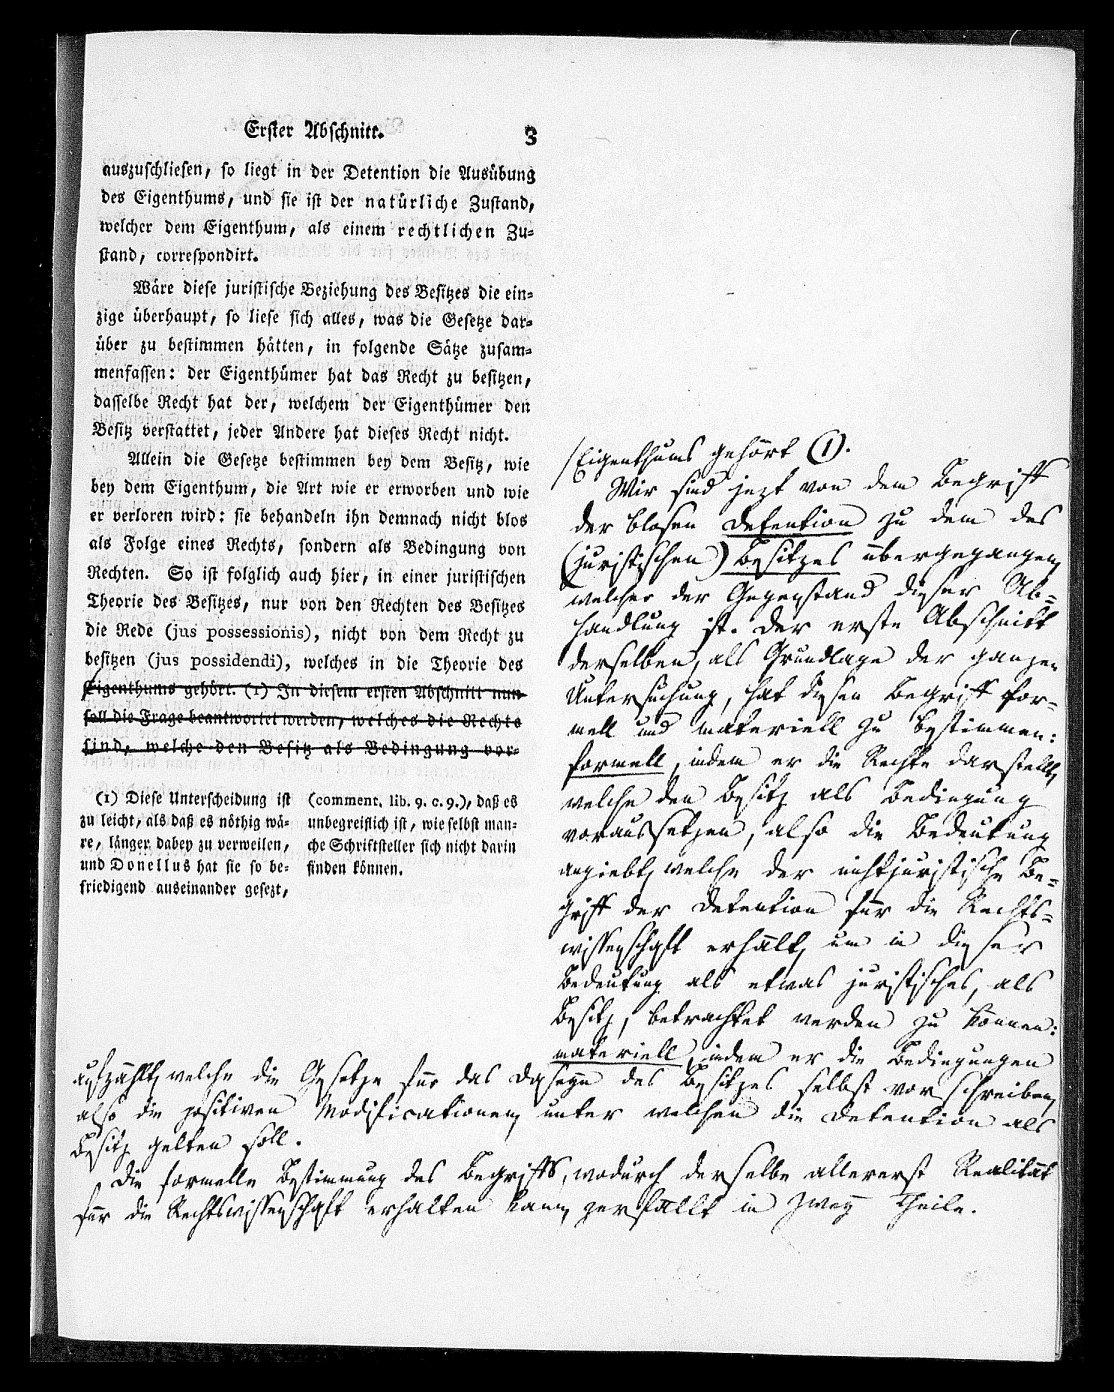 Erster Abschnitt. 3
auszuschliesen, so liegt in der Detention die Ausübung
des Eigenthums, und sie ist der natürliche Zustand,
welcher dem Eigenthum, als einem rechtlichen Zu=
stand, correspondirt.
Wäre diese juristische Beziehung des Besitzes die ein=
zige überhaupt, so liese sich alles, was die Gesetze dar=
über zu bestimmen hätten, in folgende Sätze zusam=
menfassen: der Eigenthümer hat das Recht zu besitzen,
dasselbe Recht hat der, welchem der Eigenthümer den
Besitz verstattet, jeder Andere hat dieses Recht nicht.
Allein die Gesetze bestimmen bey dem Besitz, wie
bey dem Eigenthum, die Art wie er erworben und wie
er verloren wird: sie behandeln ihn demnach nicht blos
als Folge eines Rechts, sondern als Bedingung von
Rechten. So ist folglich auch hier, in einer juristischen
Theorie des Besitzes, nur von den Rechten des Besitzes
die Rede (jus possessionis), nicht von dem Recht zu
besitzen (jus possidendi), welches in die Theorie des
Eigenthums gehört. (1) In diesem ersten Abschnitt nun
soll die Frage beantwortet werden, welches die Rechte
sind, welche den Besitz als Bedingung vor=
(1) Diese Unterscheidung ist
zu leicht, als daß es nöthig wä=
re, länger dabey zu verweilen,
und Donellus hat sie so be=
friedigend auseinander gesezt,
(comment. lib. 9. c. 9.), daß es
unbegreiflich ist, wie selbst man=
che Schriftsteller sich nicht darin
finden können.
/Eigenthums gehört (1).
Wir sind jezt von dem Begriff
der blosen Detention zu dem des
(juristischen) Besitzes übergegangen,
welcher der Gegenstand dieser Ab=
handlung ist. Der erste Abschnitt
derselben, als Grundlage der ganzen
Untersuchung, hat diesen Begriff for=
mell und materiell zu bestimmen:
formell, indem er die Rechte darstellt,
welche den Besitz als Bedingung
voraussetzen, also die Bedeutung
angiebt, welche der nichtjuristische Be=
griff der Detention für die Rechts=
wissenschaft erhält, um in dieser
Bedeutung als etwas juristisches, als
Besitz, betrachtet werden zu können:
materiell, indem er die Bedingungen
aufzählt, welche die Gesetze für das Daseyn des Besitzes selbst vorschreiben,
also die positiven Modificationen, unter welchen die Detention als
Besitz gelten soll.
Die formelle Bestimmung des Begriffs, wodurch derselbe allererst Realität
für die Rechtswissenschaft erhalten kann, zerfällt in zwey Theile.